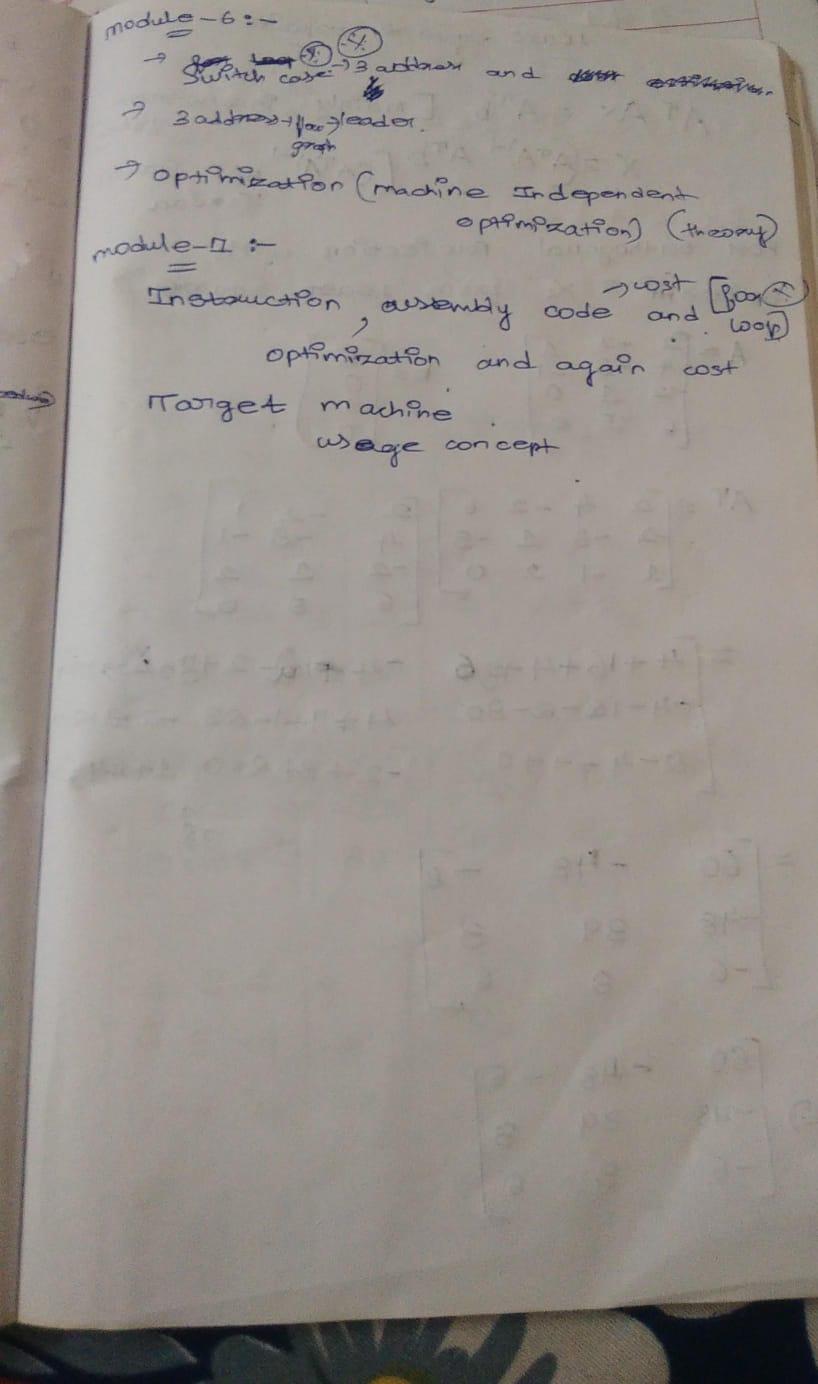 module-6:-
→ Switch case → 3 address and
→ 3 address → flow → leader.
graph
→ optimization (machine Independent
optimization) (theory)
module-7 :-
→ cost [for
Instruction, assembly code and loop]
optimization and again cost
Target machine
usage concept